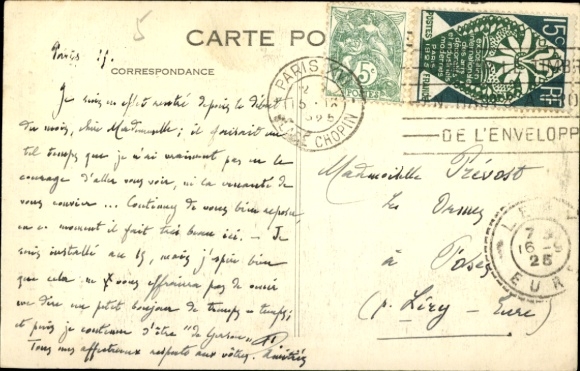 5
CARTE PO
Paris 15.
CORRESPONDANCE
Je suis en effet rentré depuis le début
du mois, chère Mademoiselle ; il faisait un
tel temps que je n'ai vraiment pas eu le
courage d'aller vous voir, ni la cruauté de
vous convier ... Continuez de vous bien reposer,
en ce moment il fait très beau ici. - Je
suis installé au 15, mais j'espère bien
que cela ne vous effraiera pas de venir
me dire un petit bonjour de temps en temps ;
et puis je continue d'être "de
Tous mes affectueux respects aux vôtres.
Mademoiselle Prévost
Les
à
(p. Léry - Eure)
PARIS XVI
15 - IX
PLACE CHOPIN
5c
POSTES
15c
POSTES FRANCE
exposition
internationale
des arts
décoratifs
et industriels
modernes
PARIS 1925
DE L'ENVELOPP
LERY
16 - 9
25
EURE